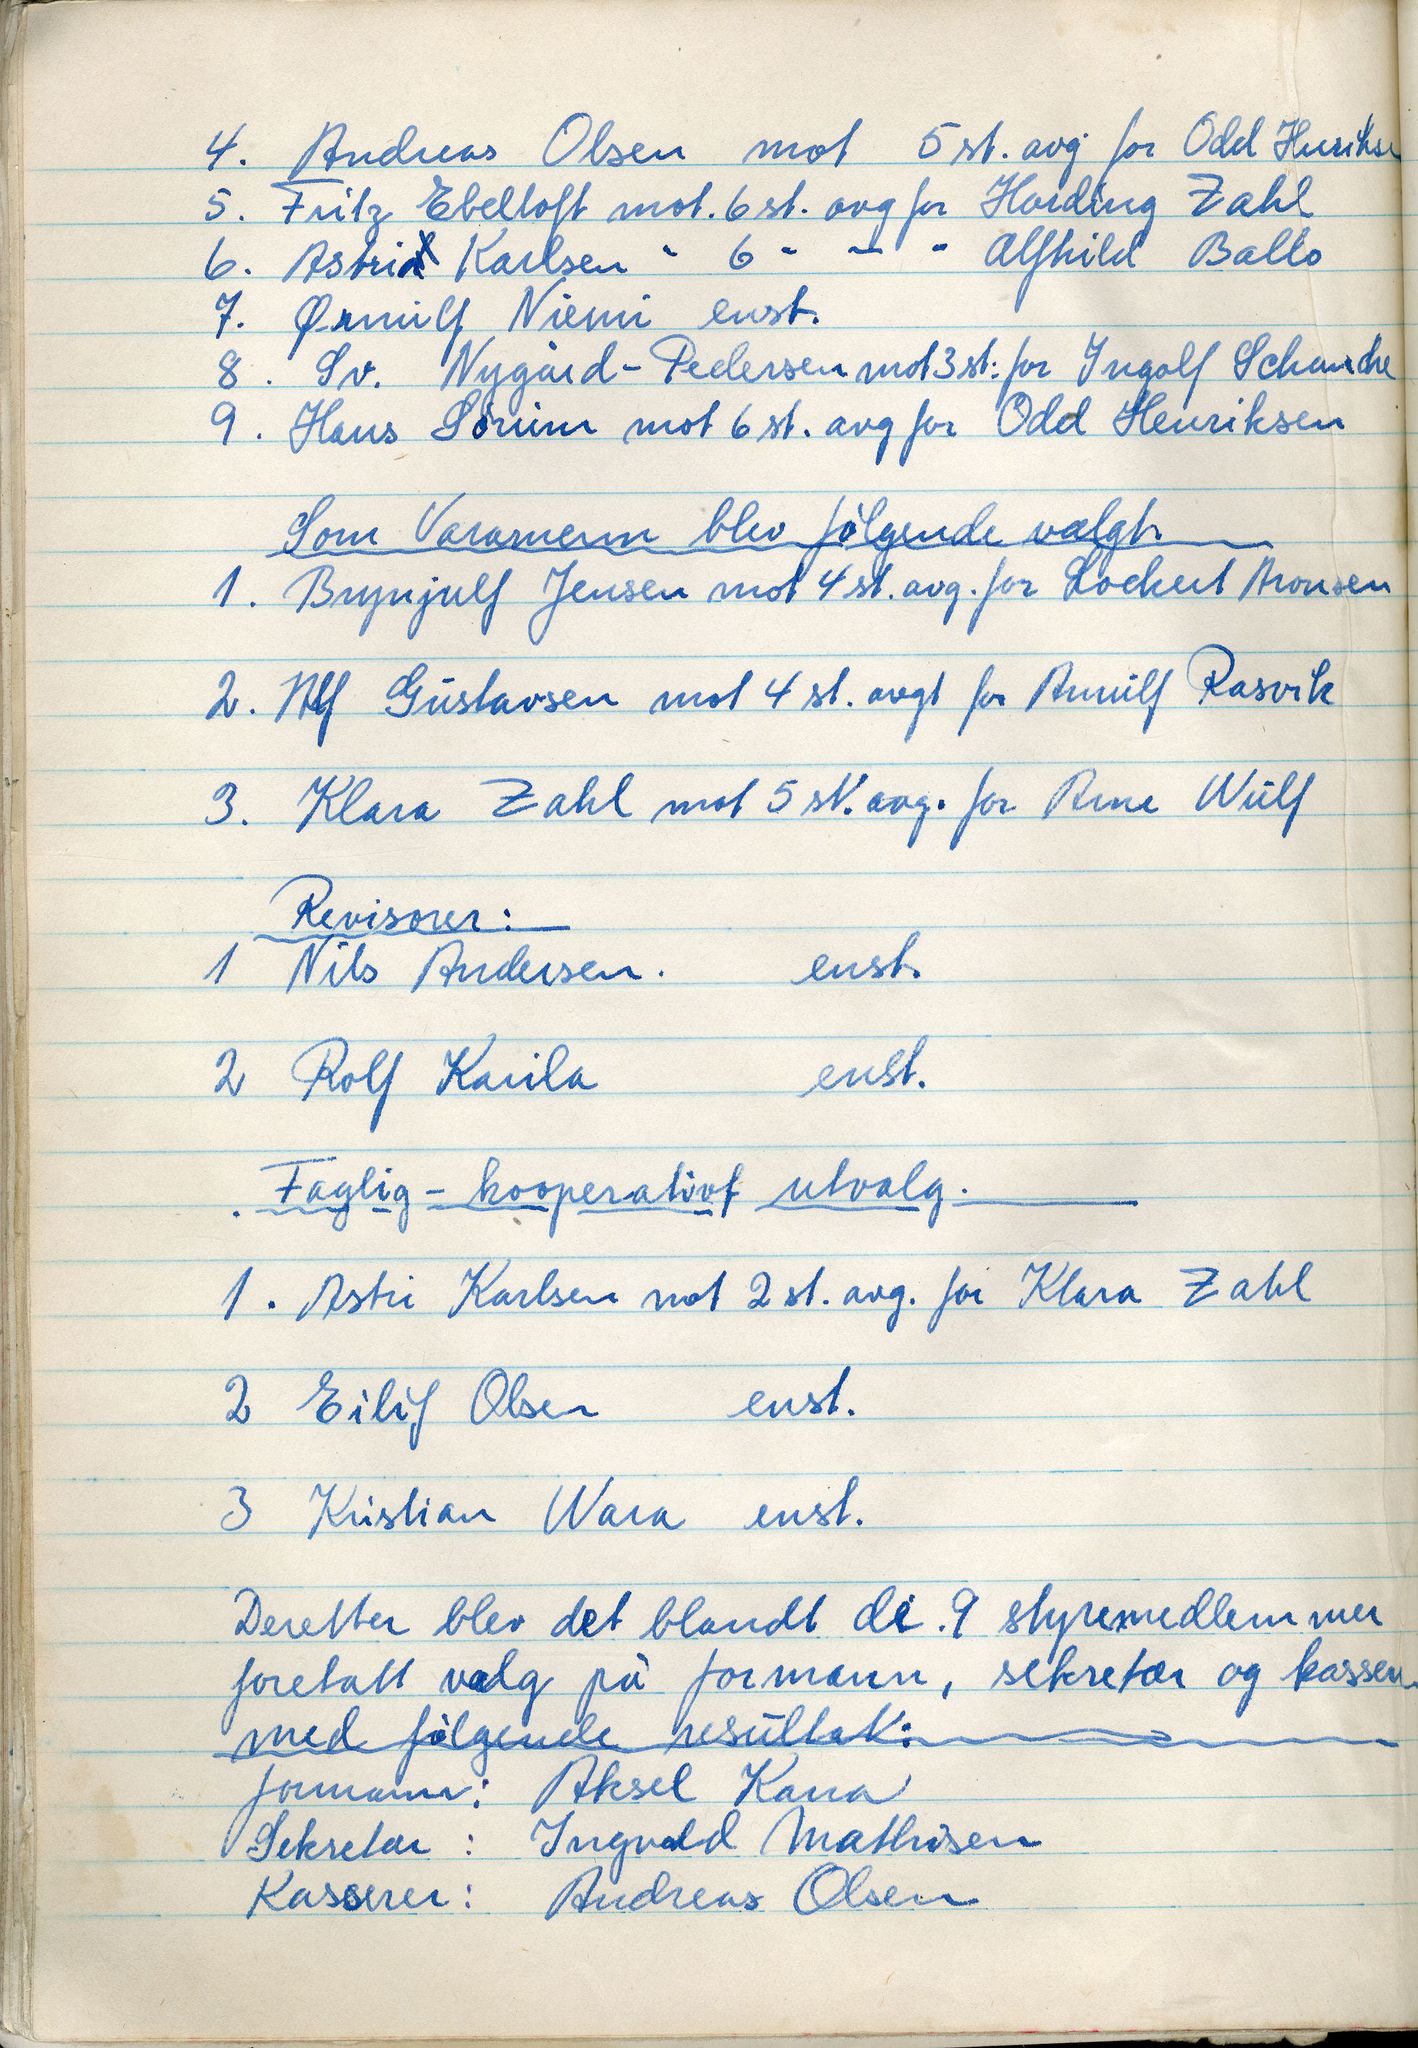 4. Andreas Olsen mot 5 st. avg for Odd Henriksen
5. Fritz Ebeltoft mot. 6 st. avg for Harding Zahl
6. Astri Karlsen " 6 " - " Alfhild Balto
7. Ørnulf Niemi enst.
8. Sv. Nygård-Pedersen mot 3 st: for Ingolf Schanche
9. Hans Sørum mot 6 st. avg for Odd Henriksen
Som Varamenn blev følgende valgt.
1. Brynjulf Jensen mot 4 st. avg. for Lockert Aronsen
2. Alf Gustavsen mot 4 st. avgt for Arnulf Rasvik
3. Klara Zahl mot 5 st. avg. for Arne Wulf
Revisorer:
1 Nils Andersen. enst.
2 Rolf Karila enst.
Faglig-kooperativt utvalg.
1. Astri Karlsen mot 2 st. avg. for Klara Zahl
2 Eilif Olsen enst.
3 Kristian Wara enst.
Deretter blev det blandt de. 9 styremedlemmer
foretatt valg på formann, sekretær og kasserer
med følgende resultat:
formann: Aksel Kana
Sekretær : Ingvald Mathisen
Kasserer: Andreas Olsen